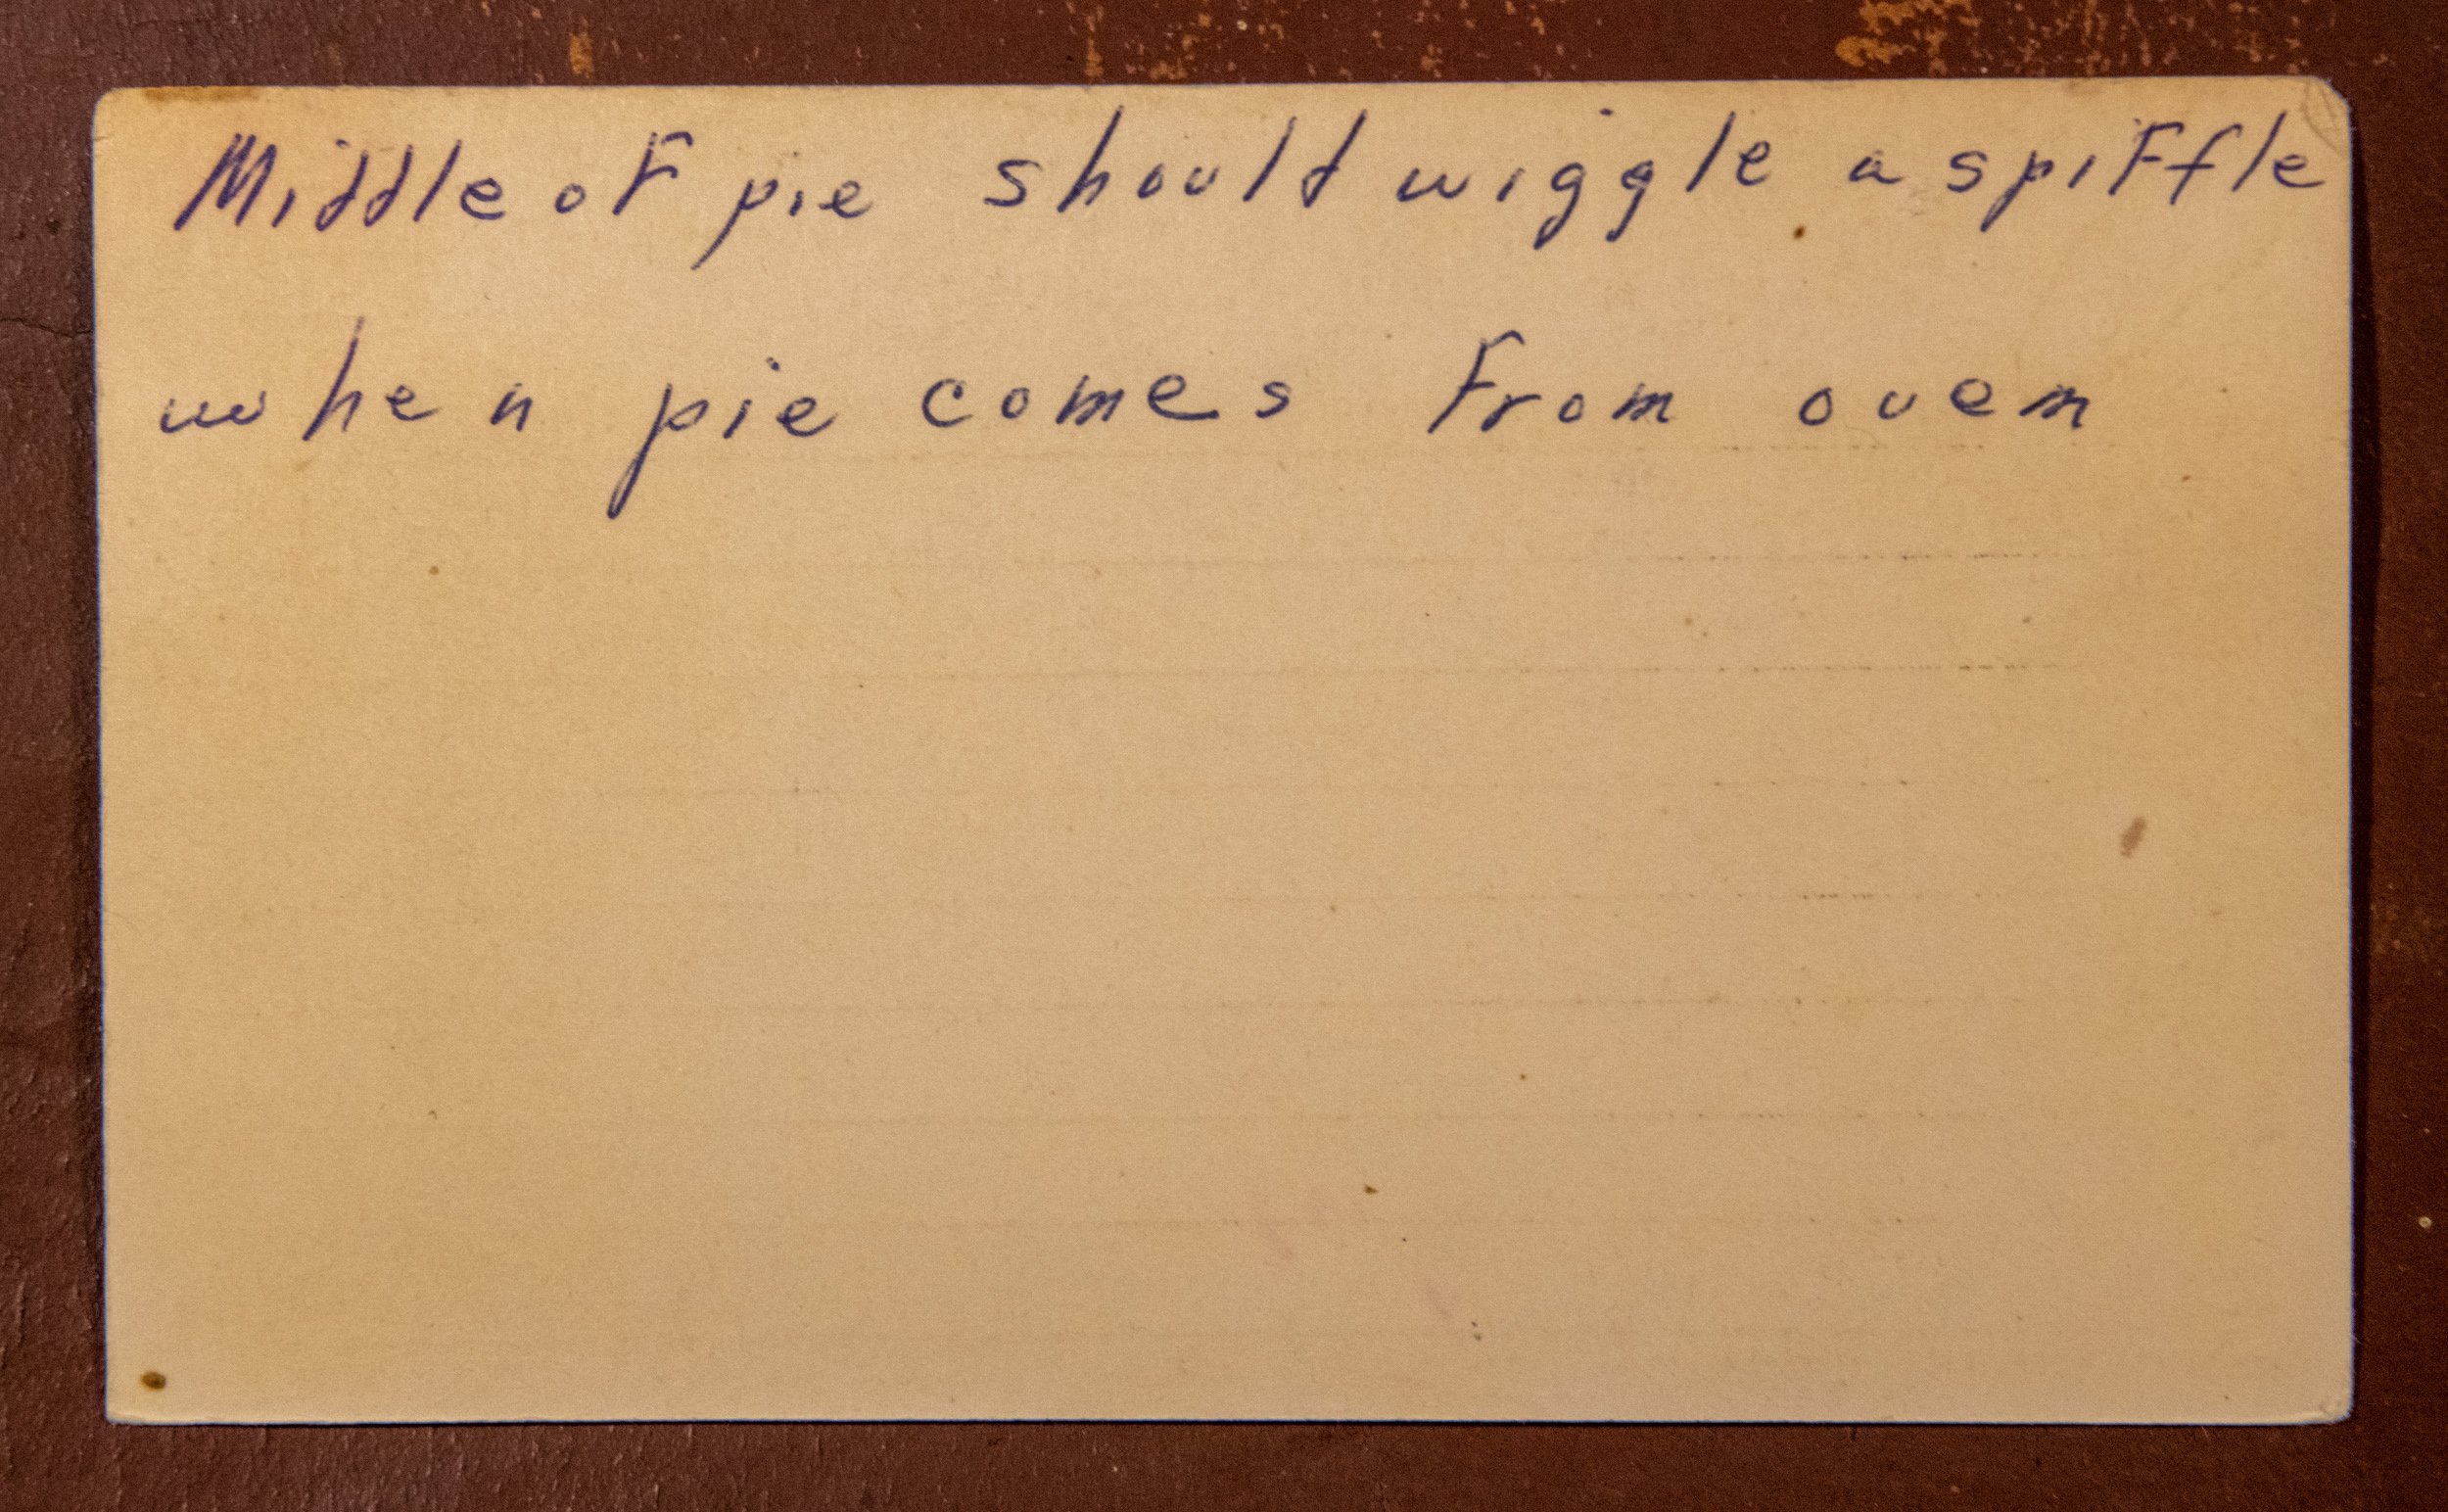 Middle of pie should wiggle a spiffle
when pie comes from oven